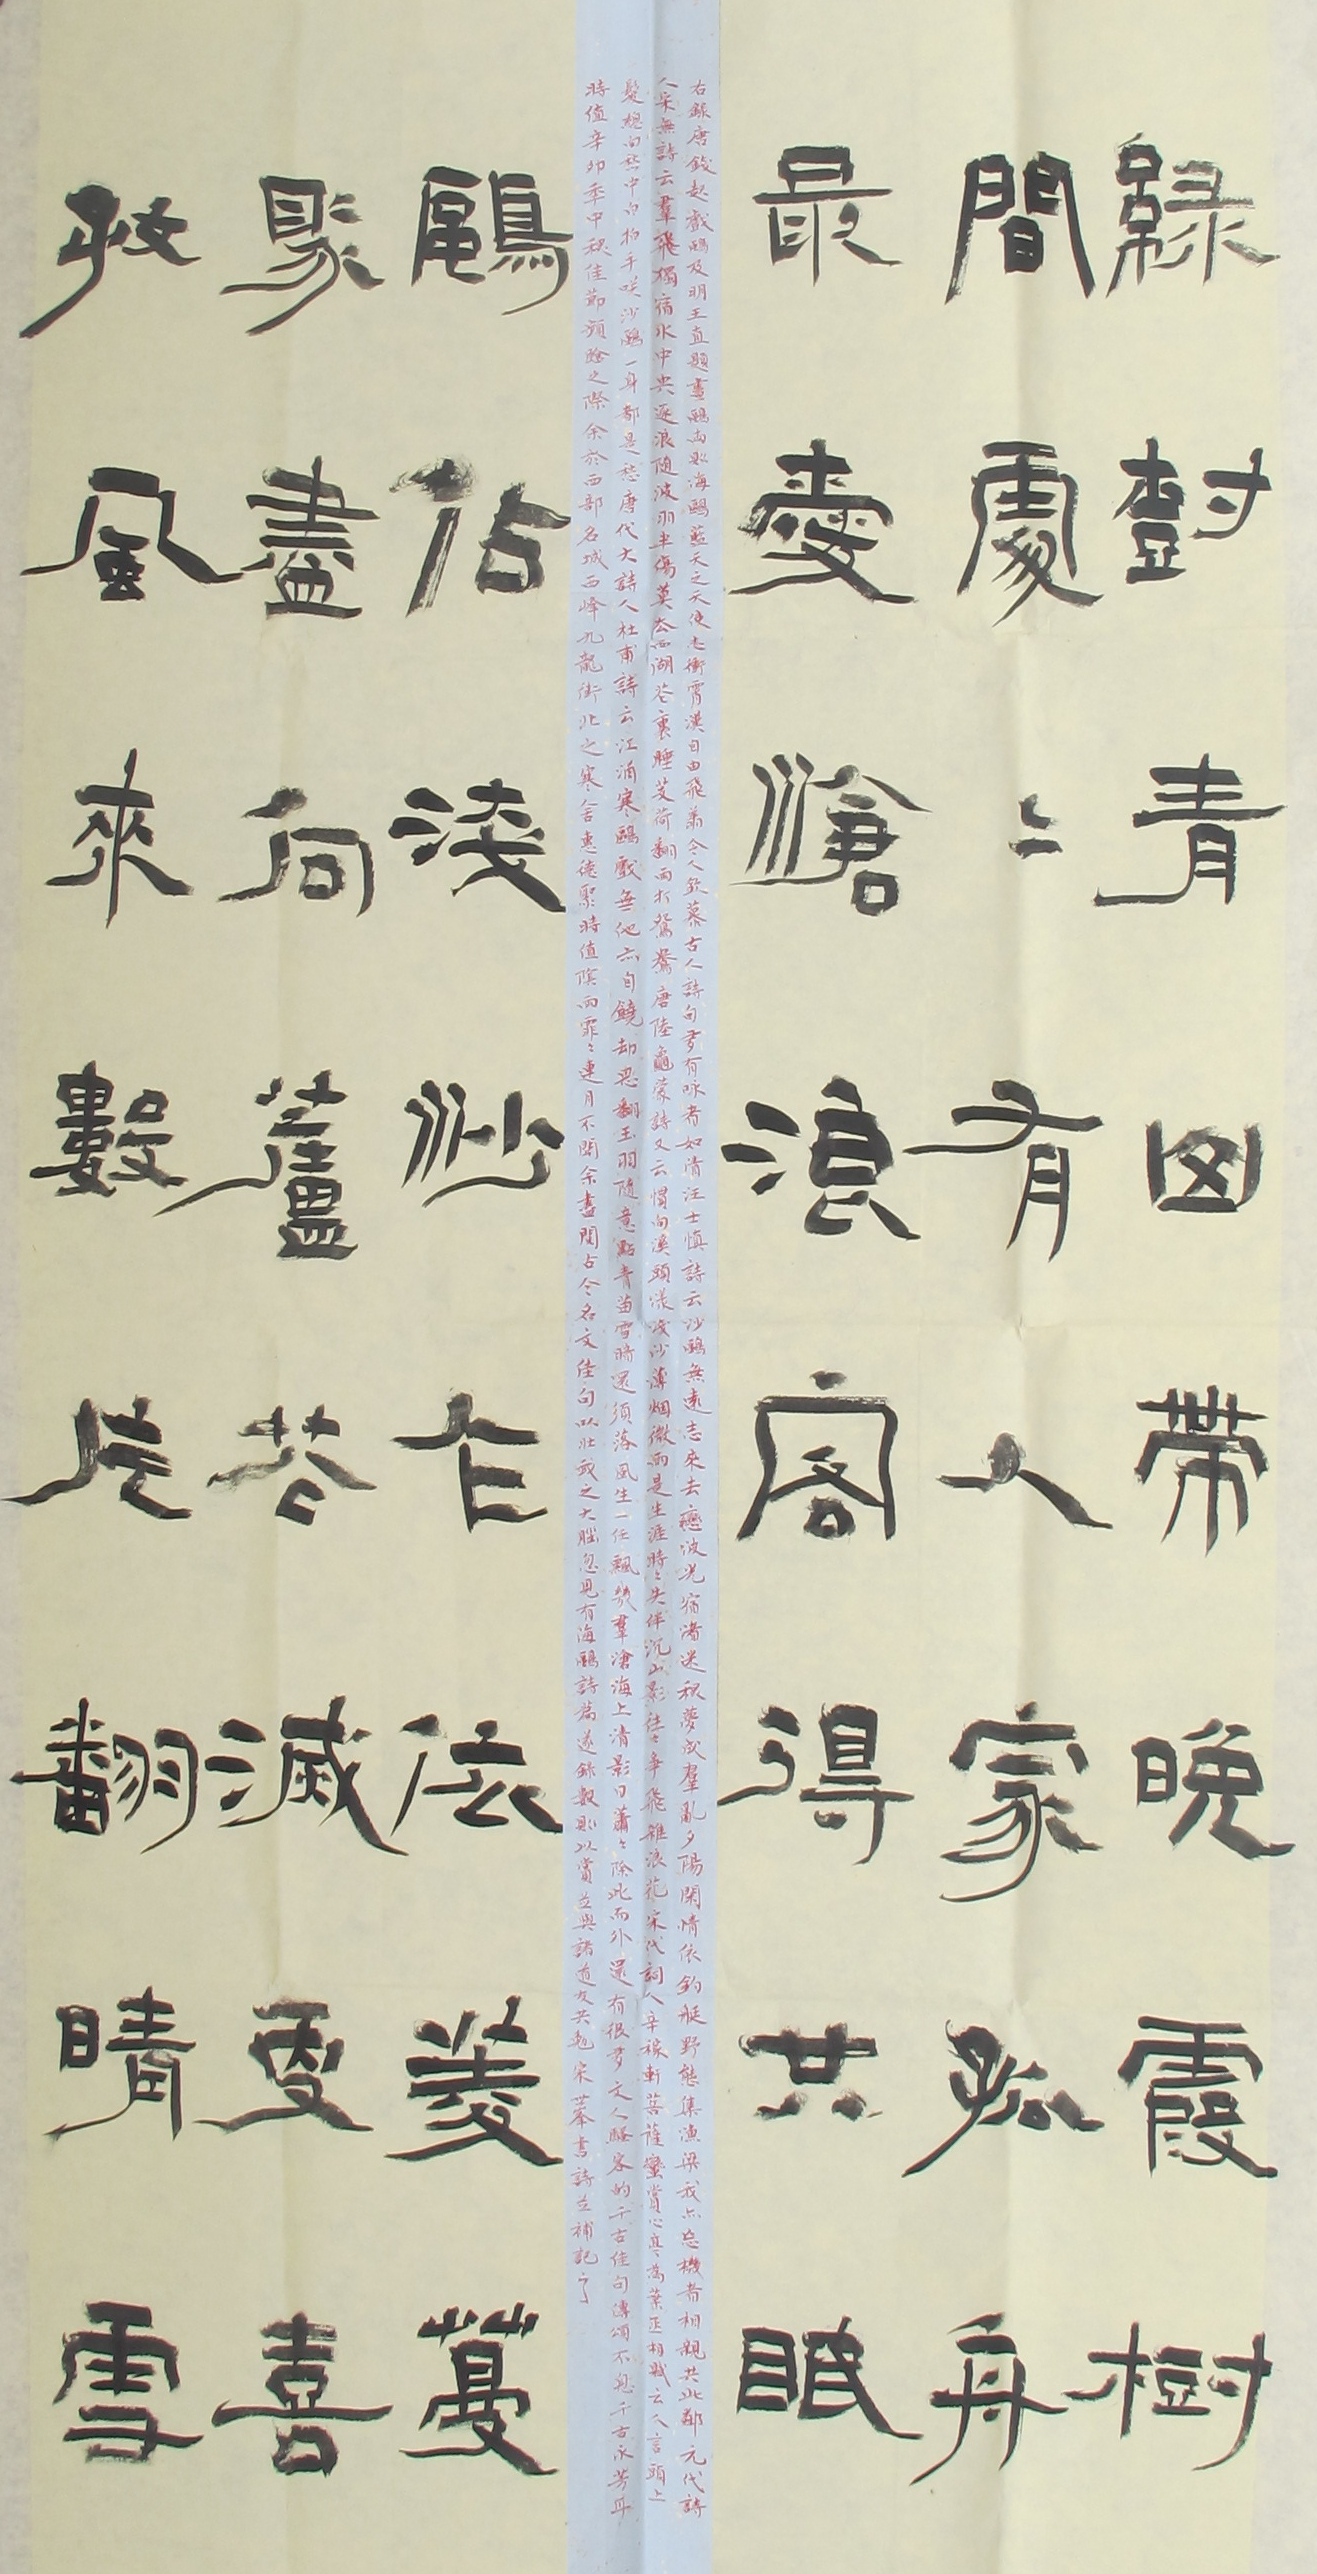 綠樹青山帶晚霞樹
間處〻有人家孤舟
最愛滄浪客得共眠
右錄唐錢起戲鷗及明王直題畫鷗兩則海鷗藍天之天使也衝霄漢自由飛翔令人欽慕古人詩句多有咏者如清汪士慎詩云沙鷗無遠志來去戀波光宿渚迷秋夢成羣亂夕陽閑情依釣艇野態集漁梁我亦忘機者相親共此鄉元代詩
人宋無詩云羣飛獨宿水中央逐浪隨波羽半傷莫去西湖花裏睡芰荷翻雨打鴛鴦唐陸龜蒙詩又云慣向溪頭漾淺沙薄烟微雨是生涯時〻失伴沉山影往〻爭飛雜浪花宋代詞人辛稼軒菩薩蠻賞心亭為葉丞相賦云人言頭上
髮總向愁中白拍手咲沙鷗一身都是愁唐代大詩人杜甫詩云江浦寒鷗戲無他亦自饒却思翻玉羽隨意點青苗雪暗還須落風生一任飄幾羣滄海上清影日蕭〻除此而外還有很多文人騷客的千古佳句傳頌不息千古永芳耳
時值辛卯年中秋佳節之際余於西部名城西峰九龍街北之寒舍惠德聚時值陰雨霏〻連月不開余盡閱古今名文佳句以壯我之大腦忽見有海鷗詩篇遂錄數則以賞並與諸道友共勉宋書詩並補記之
鷗佔淺沙乍依菱蔓
聚盡向蘆花滅更喜
好風來數片翻晴雪